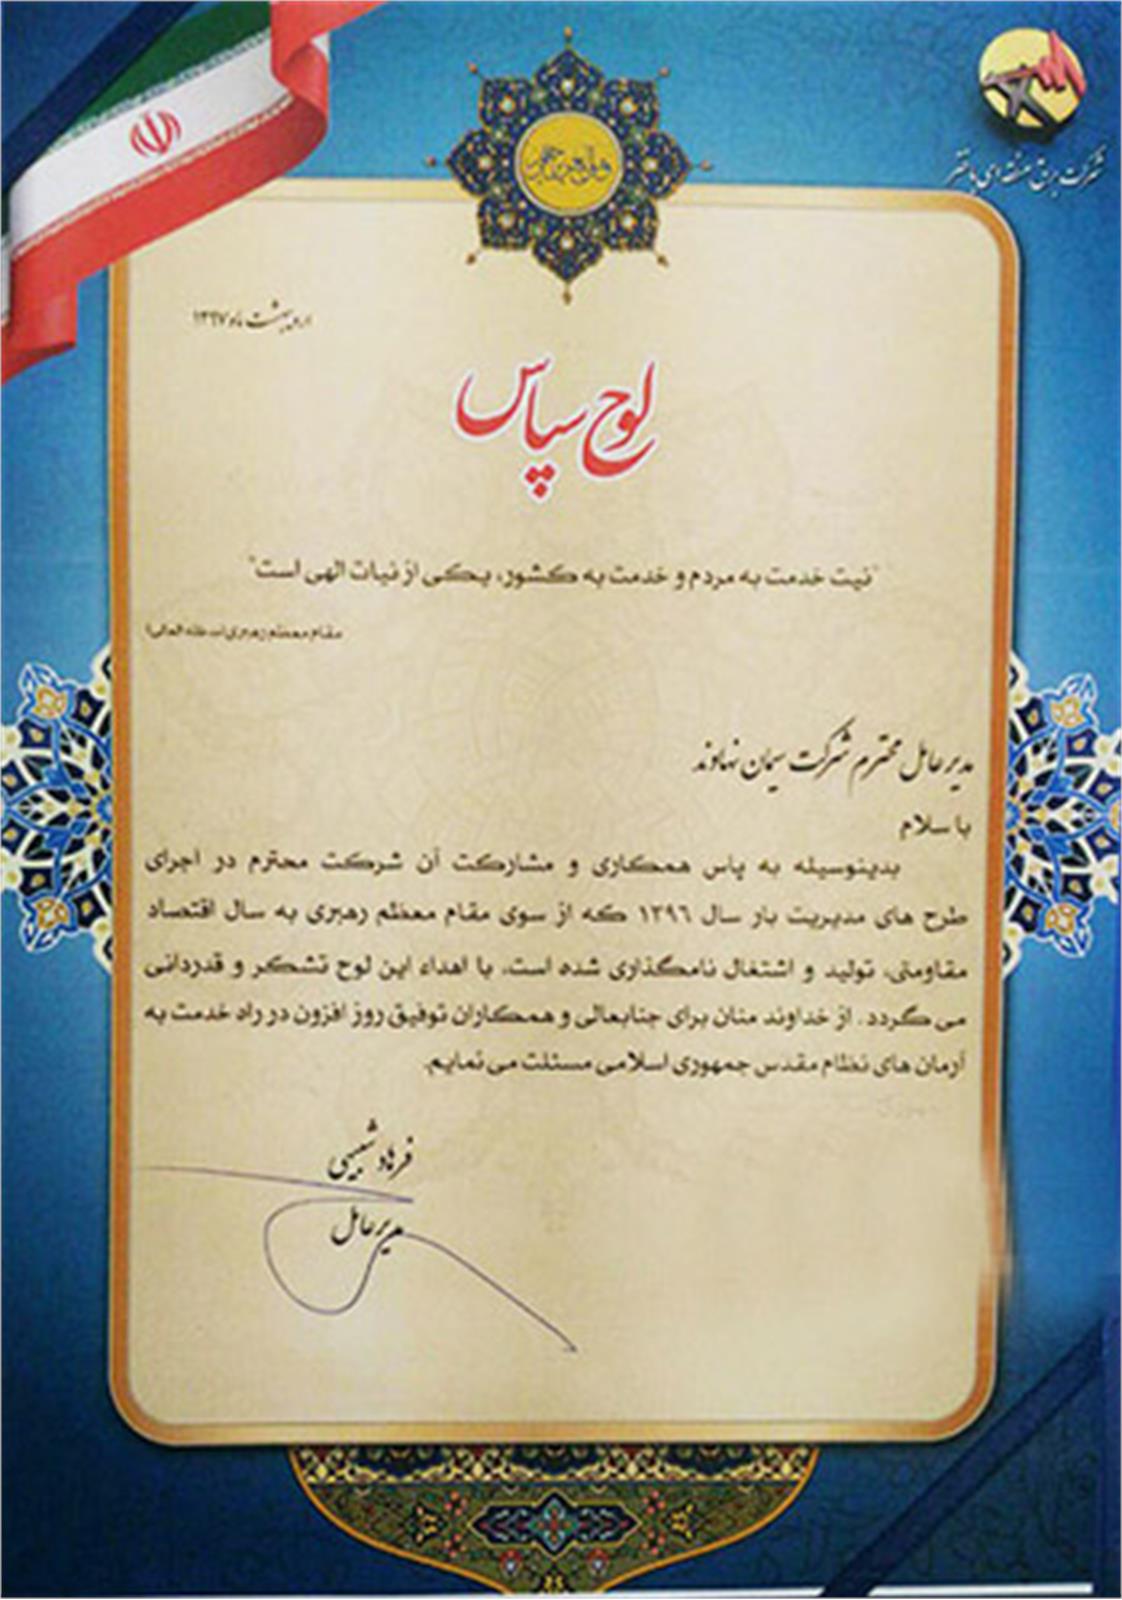 شرکت برق منطقه ای باختر
اردیبهشت ماه ۱۳۹۷
لوح سپاس
"نیت خدمت به مردم و خدمت به کشور، یکی از نیات الهی است"
مقام معظم رهبری(مدظله العالی)
مدیرعامل محترم شرکت سیمان نهاوند
با سلام
بدینوسیله به پاس همکاری و مشارکت آن شرکت محترم در اجرای
طرح های مدیریت بار سال ۱۳۹۶ که از سوی مقام معظم رهبری به سال اقتصاد
مقاومتی، تولید و اشتغال نامگذاری شده است، با اهداء این لوح تشکر و قدردانی
می گردد. از خداوند منان برای جنابعالی و همکاران توفیق روز افزون در راه خدمت به
آرمان های نظام مقدس جمهوری اسلامی مسئلت می نمایم.
فرهاد شبیهی
مدیرعامل